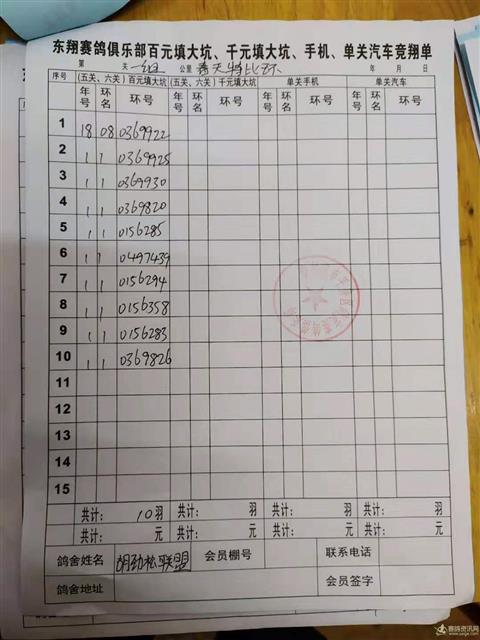 东翔赛鸽俱乐部百元填大坑、千元填大坑、手机、单关汽车竞翔单
第 关 一组 公里 春天特比环 年 月 日
序号 (五关、六关)百元填大坑 (五关、六关)千元填大坑 单关手机 单关汽车
年号 环名 环号 年号 环名 环号 年号 环名 环号 年号 环名 环号
1 18 08 0369922
2 11 0369925
3 11 0369930
4 11 0369820
5 11 0156285
6 11 0497439
7 11 0156294
8 11 0156358
9 11 0156283
10 11 0369826
11
12
13
14
15
共计: 10羽 共计: 羽 共计: 羽 共计: 羽
共计: 元 共计: 元 共计: 元 共计: 元
鸽舍姓名 胡劲松联盟 会员棚号 联系电话
鸽舍地址 会员签字
赛鸽资讯网